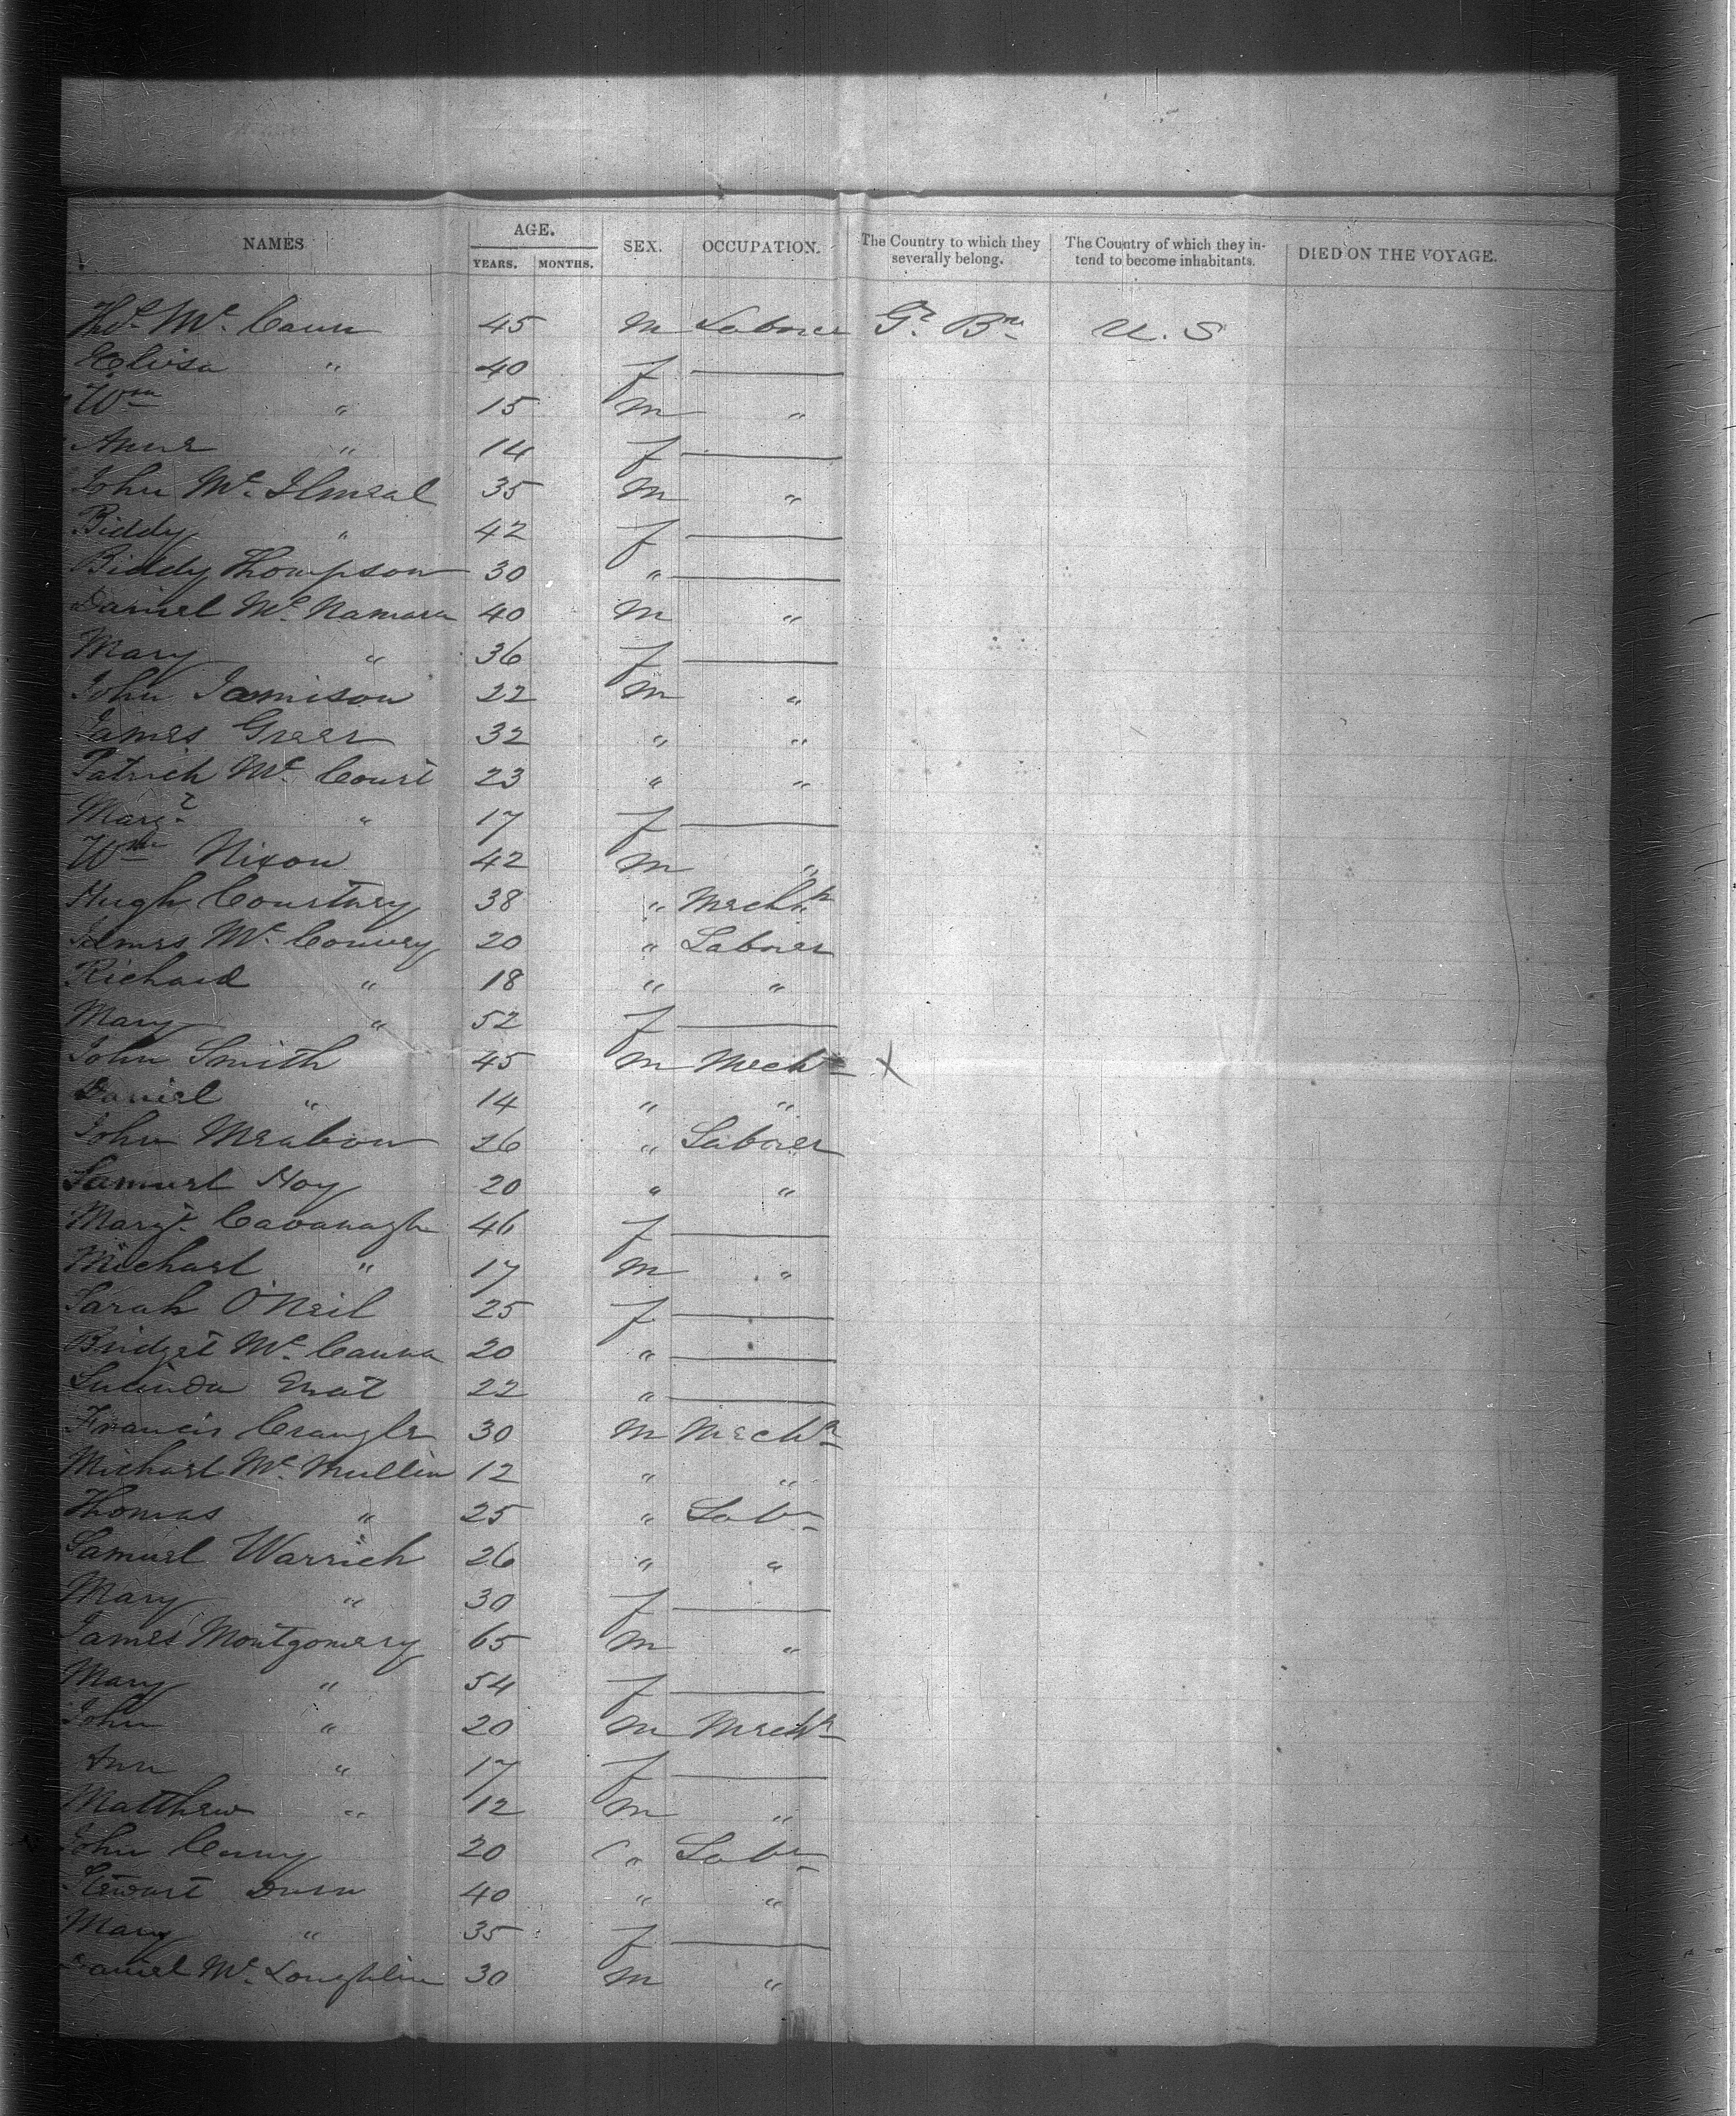 NAMES. AGE. SEX. OCCUPATION. The Country to which they severally belong. The Country of which they intend to become inhabitants. DIED ON THE VOYAGE.
YEARS. MONTHS.
Thos. Mc. Cann 45 m Laborer Gt. Bn U. S
Eliza " 40 f
Wm " 15 m "
Anne " 14 f
John Mc. 35 m "
Biddy " 42 f
Biddy Thompson 30 "
Daniel Mc. Namara 40 m "
Mary " 36 f
John Jamison 22 m "
James Greer 32 " "
Patrick Mc. Court 23 " "
Margt " 17 f
Wm Nixon 42 m "
Hugh Courtney 38 " Mechn
James Mc. Convey 20 " Laborer
Richard " 18 " "
Mary " 52 f
John Smith 45 m Mechn X
Daniel " 14 " "
John 26 " Laborer
Samuel Hoy 20 " "
Margt. Cavanagh 46 f
Michael " 17 m "
Sarah O'Neil 25 f
Bridget Mc. Canna 20 "
Lucinda 22 "
Francis Crangle 30 m Mechn
Michael Mc. Mullin 12 " "
Thomas " 25 " Labr
Samuel Warrick 26 " "
Mary " 30 f
James Montgomery 65 m "
Mary " 54 f
John " 20 m Mechn
Ann " 17 f
Matthew " 12 m "
John 20 " Labr
Stewart 40 " "
Mary " 35 f
Daniel Mc. Loughlin 30 m "